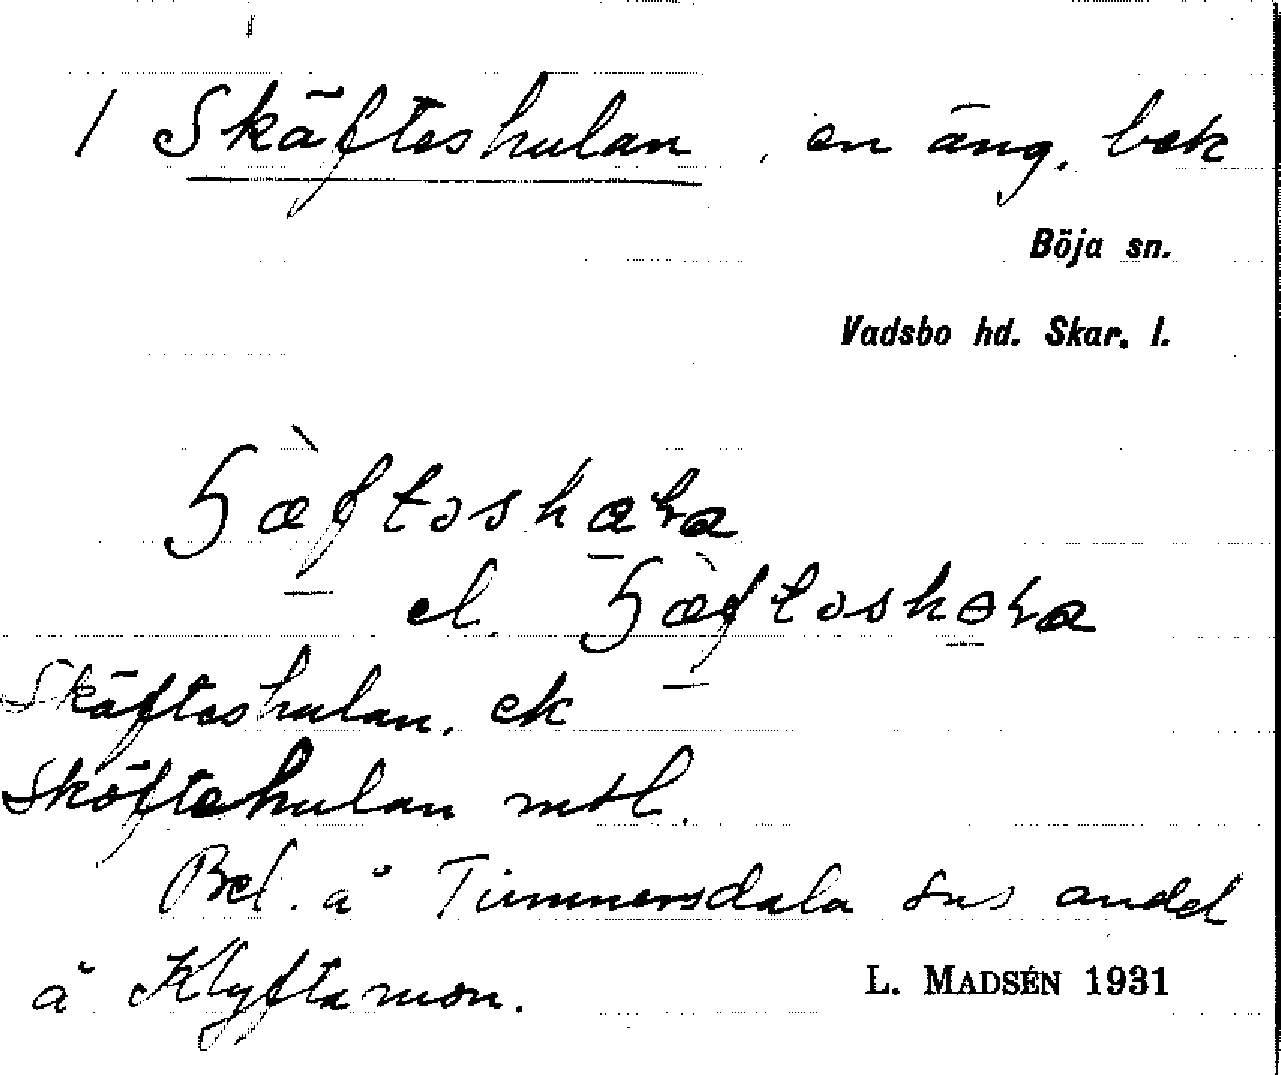 1 Skäfteshulan, en äng. bek
Böja sn.
Vadsbo hd. Skar. l.
el.
Skäfteshulan. ek
Sköftehulan mtl.
Bel. å Timmersdala sns andel
å Klyftamon.
L. MADSÉN 1931